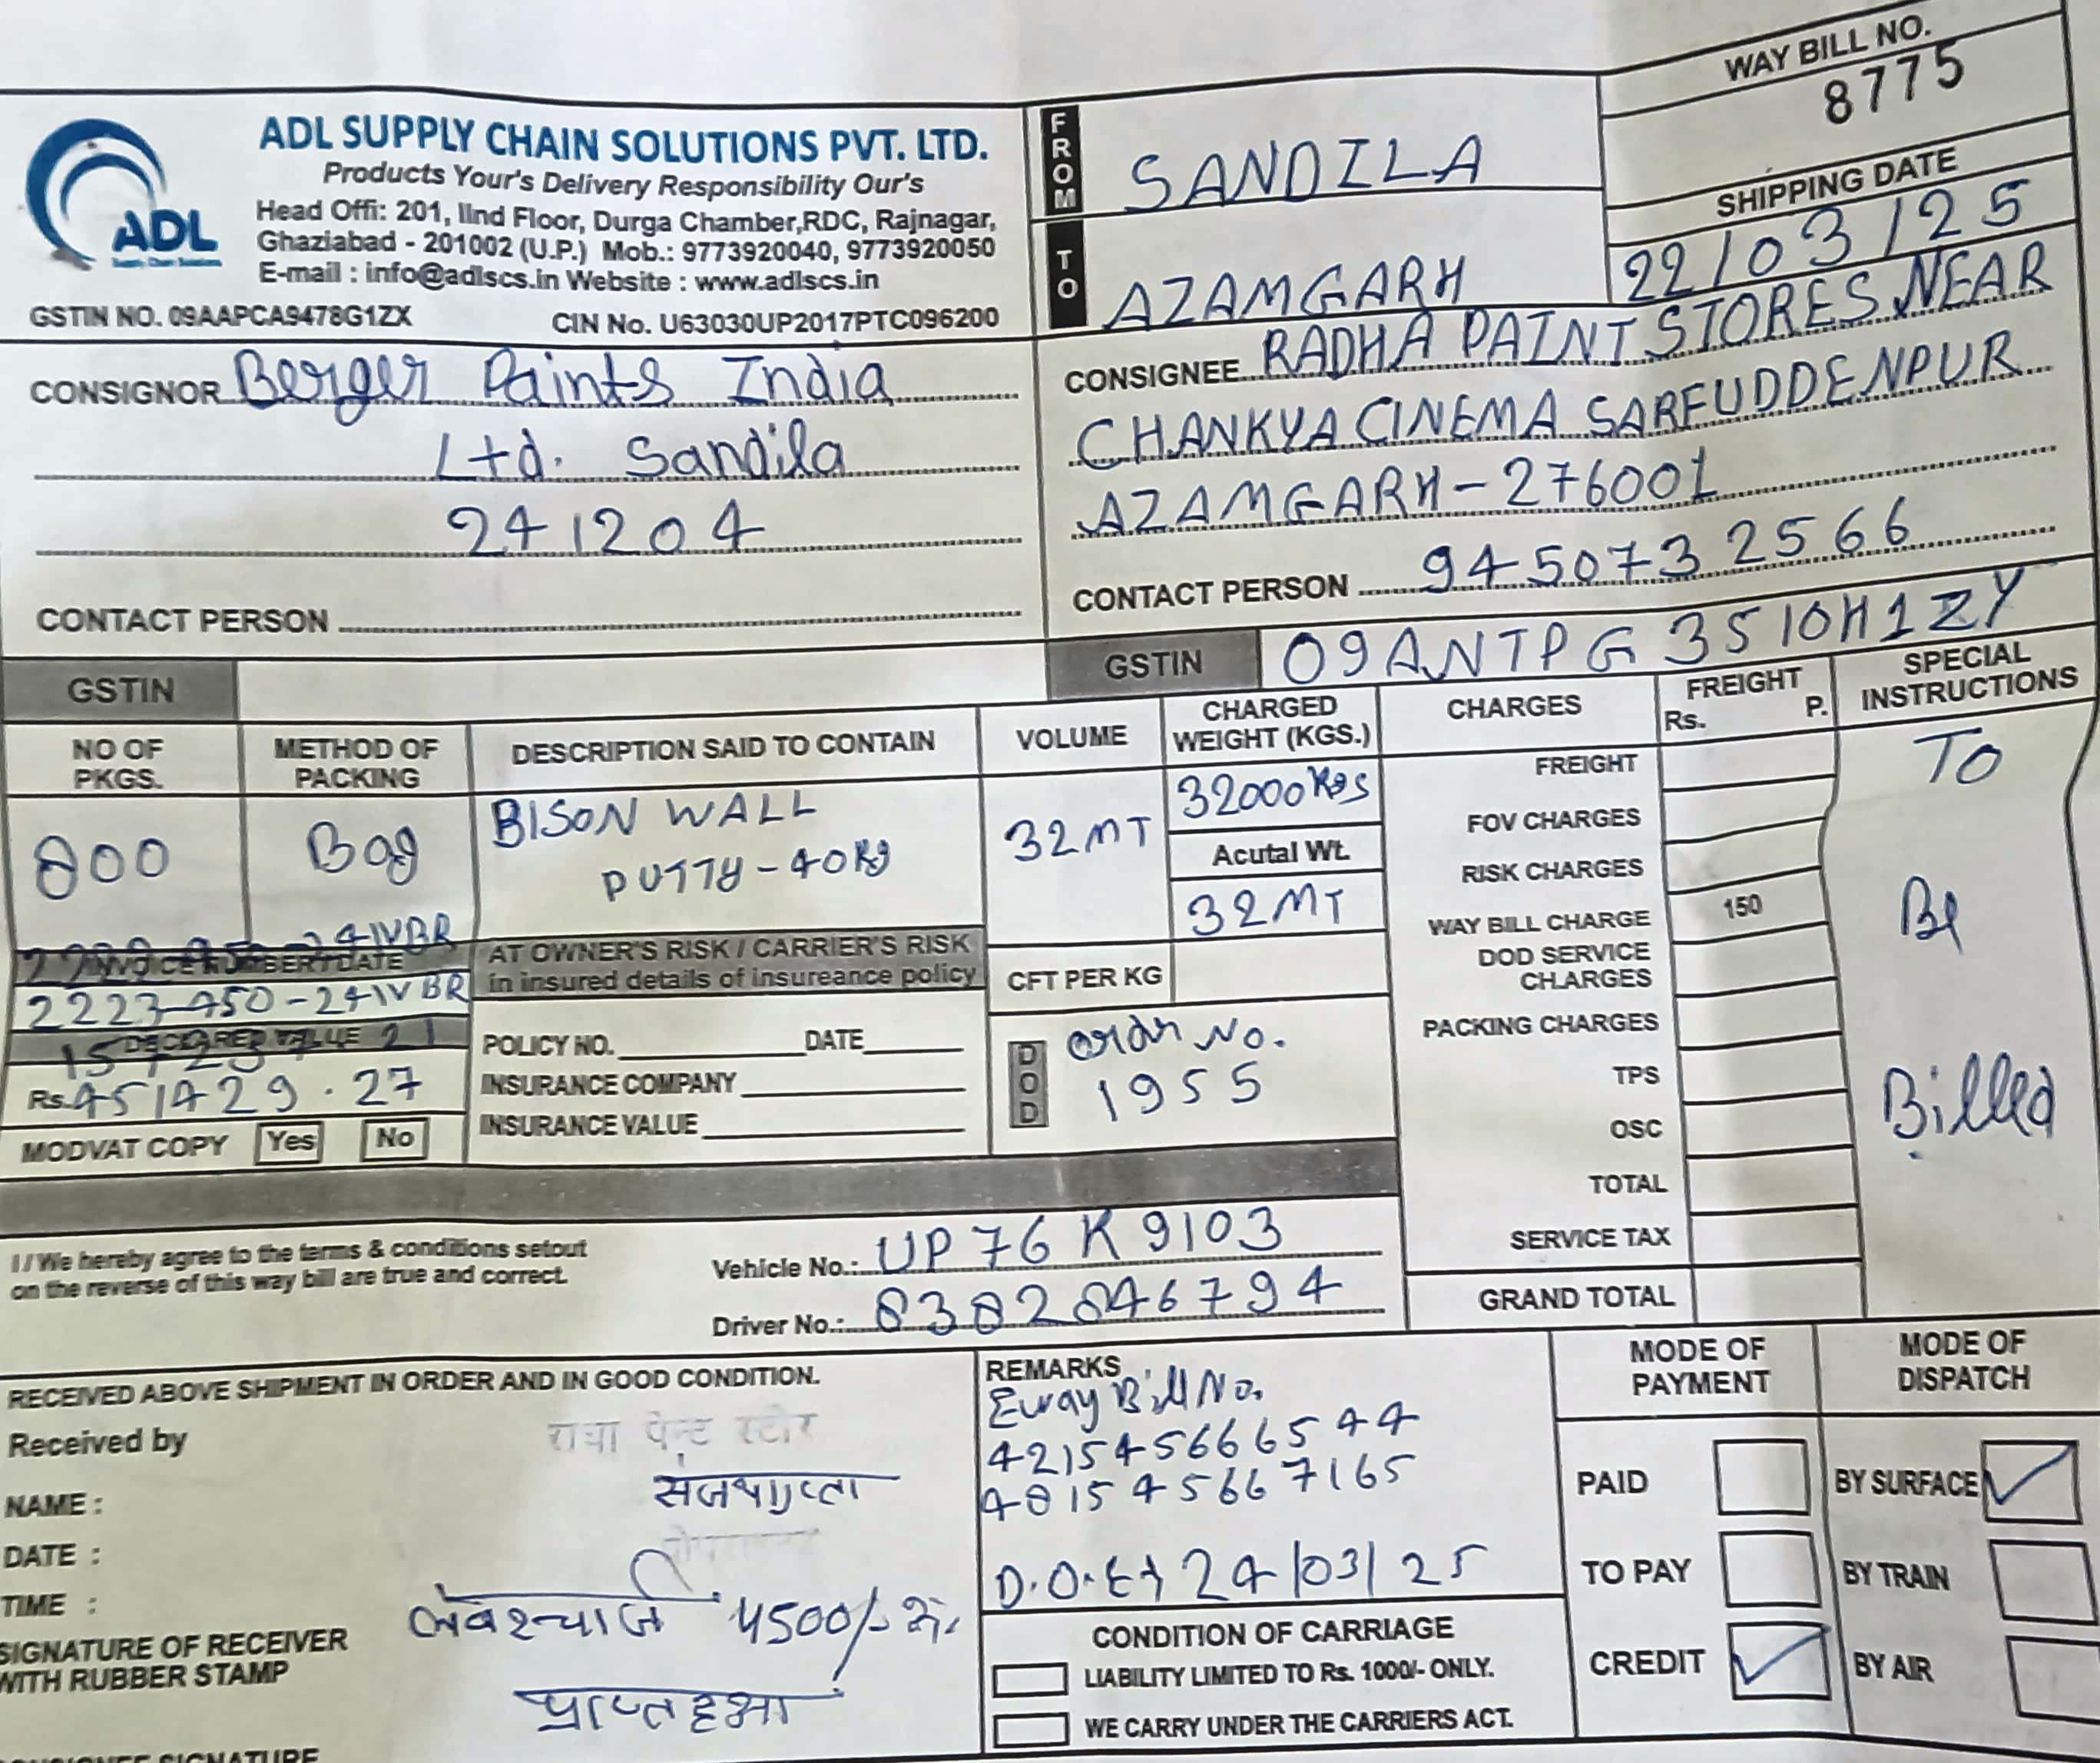 WAY BILL NO.
8775
ADL
Supply Chain Solutions
ADL SUPPLY CHAIN SOLUTIONS PVT. LTD.
Products Your's Delivery Responsibility Our's
Head Offi: 201, IInd Floor, Durga Chamber,RDC, Rajnagar,
Ghaziabad - 201002 (U.P.) Mob.: 9773920040, 9773920050
E-mail : info@adlscs.in Website : www.adlscs.in
GSTIN NO. 09AAPCA9478G1ZX CIN No. U63030UP2017PTC096200
FROM SANDILA
TO AZAMGARH
SHIPPING DATE
22/03/25
CONSIGNOR Berger Paints India
Ltd. Sandila
241204
CONTACT PERSON
CONSIGNEE RADHA PAINT STORES NEAR
CHANKYA CINEMA SARFUDDENPUR
AZAMGARH-276001
CONTACT PERSON 9450732566
GSTIN
GSTIN 09ANTPG3510H1ZY
NO OF PKGS. METHOD OF PACKING DESCRIPTION SAID TO CONTAIN VOLUME CHARGED WEIGHT (KGS.) CHARGES FREIGHT Rs. P. SPECIAL INSTRUCTIONS
800 Bag BISON WALL 32MT 32000Kgs
PUTTY-40Kg
Acutal Wt.
32MT
INVOICE NUMBER / DATE
2223-450-24IVBR
DECLARED VALUE
Rs. 451429.27
MODVAT COPY Yes No
AT OWNER'S RISK / CARRIER'S RISK
in insured details of insureance policy
POLICY NO. DATE
INSURANCE COMPANY
INSURANCE VALUE
CFT PER KG
DOD Order No.
1955
FREIGHT
FOV CHARGES
RISK CHARGES
WAY BILL CHARGE 150
DOD SERVICE
CHARGES
PACKING CHARGES
TPS
OSC
TOTAL
SERVICE TAX
GRAND TOTAL
TO
Be
Billed
I / We hereby agree to the terms & conditions setout
on the reverse of this way bill are true and correct.
Vehicle No.: UP 76 K 9103
Driver No.: 8382846794
RECEIVED ABOVE SHIPMENT IN ORDER AND IN GOOD CONDITION.
Received by
राधा पेन्ट स्टोर
NAME :
संजय गुप्ता
DATE :
TIME :
4500/-
SIGNATURE OF RECEIVER
WITH RUBBER STAMP
प्राप्त हुआ
CONSIGNEE SIGNATURE
REMARKS
Eway Bill No.
421545666544
481545667165
24/03/25
CONDITION OF CARRIAGE
LIABILITY LIMITED TO Rs. 1000/- ONLY.
WE CARRY UNDER THE CARRIERS ACT.
MODE OF
PAYMENT
PAID
TO PAY
CREDIT
MODE OF
DISPATCH
BY SURFACE
BY TRAIN
BY AIR